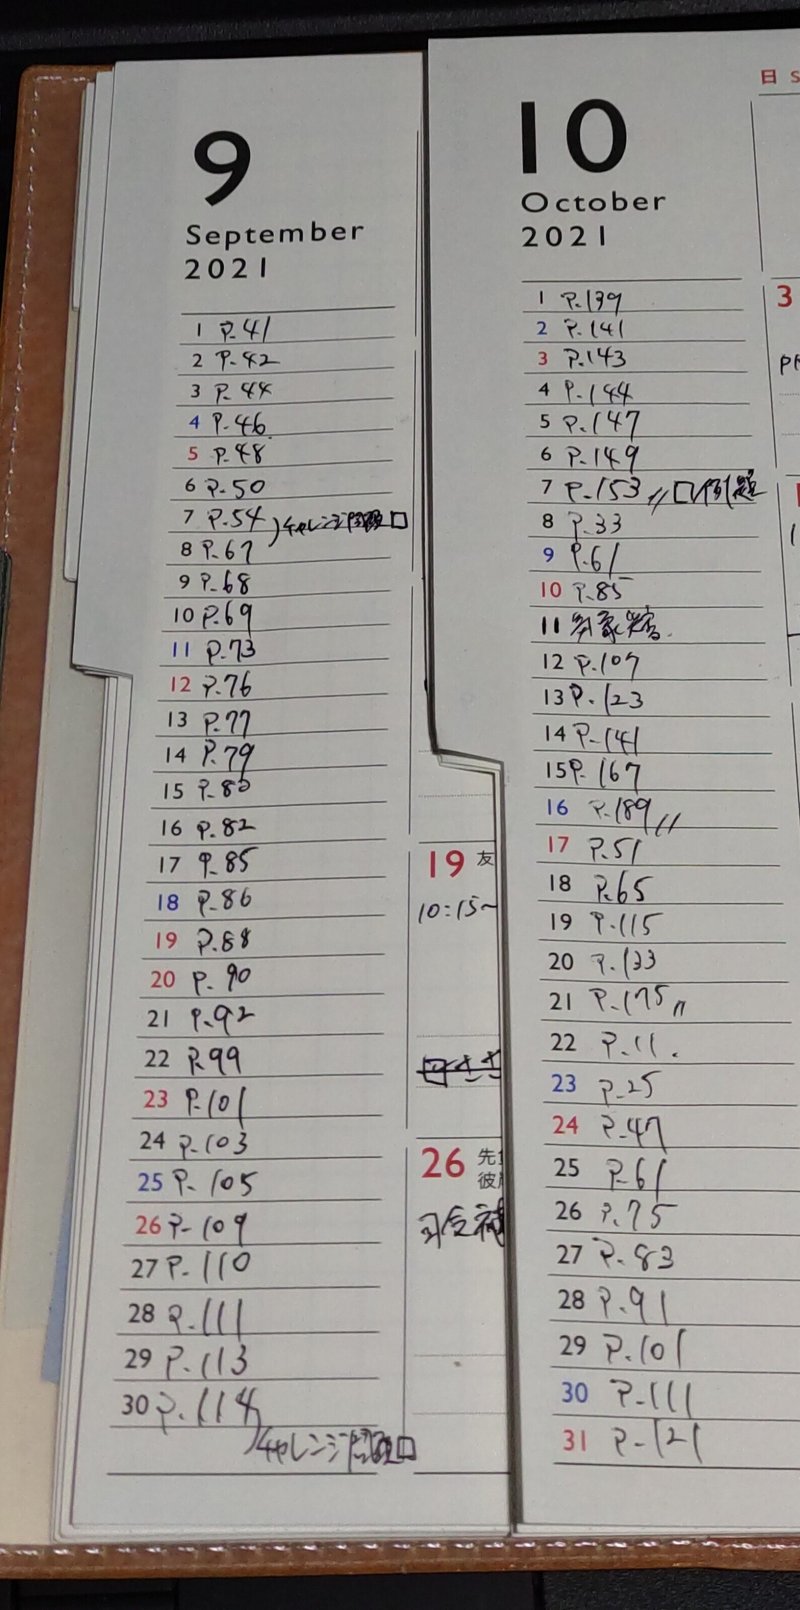 9
September
2021
1 P.41
2 P.42
3 P.44
4 P.46
5 P.48
6 P.50
7 P.54 チャレンジ問題口
8 P.67
9 P.68
10 P.69
11 P.73
12 P.76
13 P.77
14 P.79
15 P.80
16 P.82
17 P.85
18 P.86
19 P.88
20 P.90
21 P.92
22 P.99
23 P.101
24 P.103
25 P.105
26 P.109
27 P.110
28 P.111
29 P.113
30 P.114
チャレンジ問題口
19 友
10:15~
26 先
彼
司令
10
October
2021
1 P.139
2 P.141
3 P.143
4 P.144
5 P.147
6 P.149
7 P.153 〃 口例題
8 P.33
9 P.61
10 P.85
11
12 P.107
13 P.123
14 P.141
15 P.167
16 P.189 〃
17 P.51
18 P.65
19 P.115
20 P.133
21 P.175 〃
22 P.11.
23 P.25
24 P.47
25 P.61
26 P.75
27 P.83
28 P.91
29 P.101
30 P.111
31 P.121
日 S
3